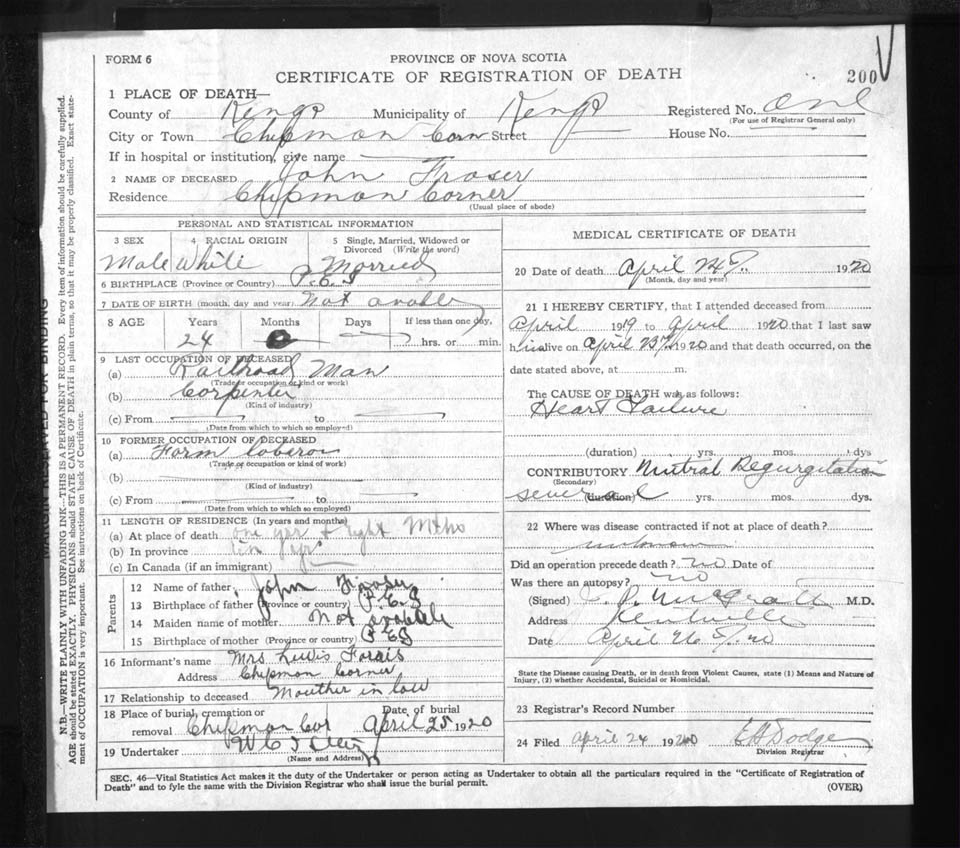 FORM 6
PROVINCE OF NOVA SCOTIA
CERTIFICATE OF REGISTRATION OF DEATH
200
1 PLACE OF DEATH—
County of Kings Municipality of Kings Registered No. one
(For use of Registrar General only)
City or Town Chipman Corn Street House No.
If in hospital or institution, give name
2 NAME OF DECEASED John Fraser
Residence Chipman Corner
(Usual place of abode)
PERSONAL AND STATISTICAL INFORMATION
3 SEX 4 RACIAL ORIGIN 5 Single, Married, Widowed or Divorced (Write the word)
Male White Married
6 BIRTHPLACE (Province or Country) P.E.I
7 DATE OF BIRTH (month, day and year) Not avable
8 AGE Years Months Days If less than one day,
24 0 hrs. or min.
9 LAST OCCUPATION OF DECEASED
(a) Railroad Man
(Trade or occupation or kind or work)
(b) Corpenter
(Kind of industry)
(c) From to
(Date from which to which so employed)
10 FORMER OCCUPATION OF DECEASED
(a) Farm
(Trade or occupation or kind of work)
(b)
(Kind of industry)
(c) From to
(Date from which to which so employed)
11 LENGTH OF RESIDENCE (In years and months)
(a) At place of death one year + eight Mths
(b) In province
(c) In Canada (if an immigrant)
Parents
12 Name of father, John Fraser
13 Birthplace of father (Province or country) P.E.I
14 Maiden name of mother Not avabele
15 Birthplace of mother (Province or country) P EI
16 Informant's name Mrs Lewis
Address Chipman Corner
17 Relationship to deceased Mouther in law
18 Place of burial, cremation or removal Chipman Cor Date of burial April 25 1920
19 Undertaker
(Name and Address)
MEDICAL CERTIFICATE OF DEATH
20 Date of death April 24 1920
(Month, day and year)
21 I HEREBY CERTIFY, that I attended deceased from
April 1919 to April 1920 that I last saw
h im alive on April 23 1920 and that death occurred, on the
date stated above, at m.
The CAUSE OF DEATH was as follows:
Heart Failure
(duration) yrs. mos. dys
CONTRIBUTORY Mitral Regurgitation
(Secondary)
several (duration) yrs. mos. dys.
22 Where was disease contracted if not at place of death?
unknown
Did an operation precede death? no Date of
Was there an autopsy? no
(Signed) McGrath M.D.
Address Kentville
Date April 26 20
State the Disease causing Death, or in death from Violent Causes, state (1) Means and Nature of Injury, (2) whether Accidental, Suicidal or Homicidal.
23 Registrar's Record Number
24 Filed april 24 1920 Dodge
Division Registrar
SEC. 46—Vital Statistics Act makes it the duty of the Undertaker or person acting as Undertaker to obtain all the particulars required in the "Certificate of Registration of
Death" and to fyle the same with the Division Registrar who shall issue the burial permit.
(OVER)
MARGIN RESERVED FOR BINDING
N.B.—WRITE PLAINLY WITH UNFADING INK—THIS IS A PERMANENT RECORD. Every item of information should be carefully supplied.
AGE should be stated EXACTLY. PHYSICIANS should STATE CAUSE OF DEATH in plain terms, so that it may be properly classified. Exact statement of OCCUPATION is very important. See instructions on back of Certificate.